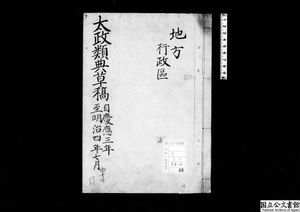 地方
行政區
太政類典草稿
自慶應三年
至明治四年七月
国立公文書館
National Archives of Japan